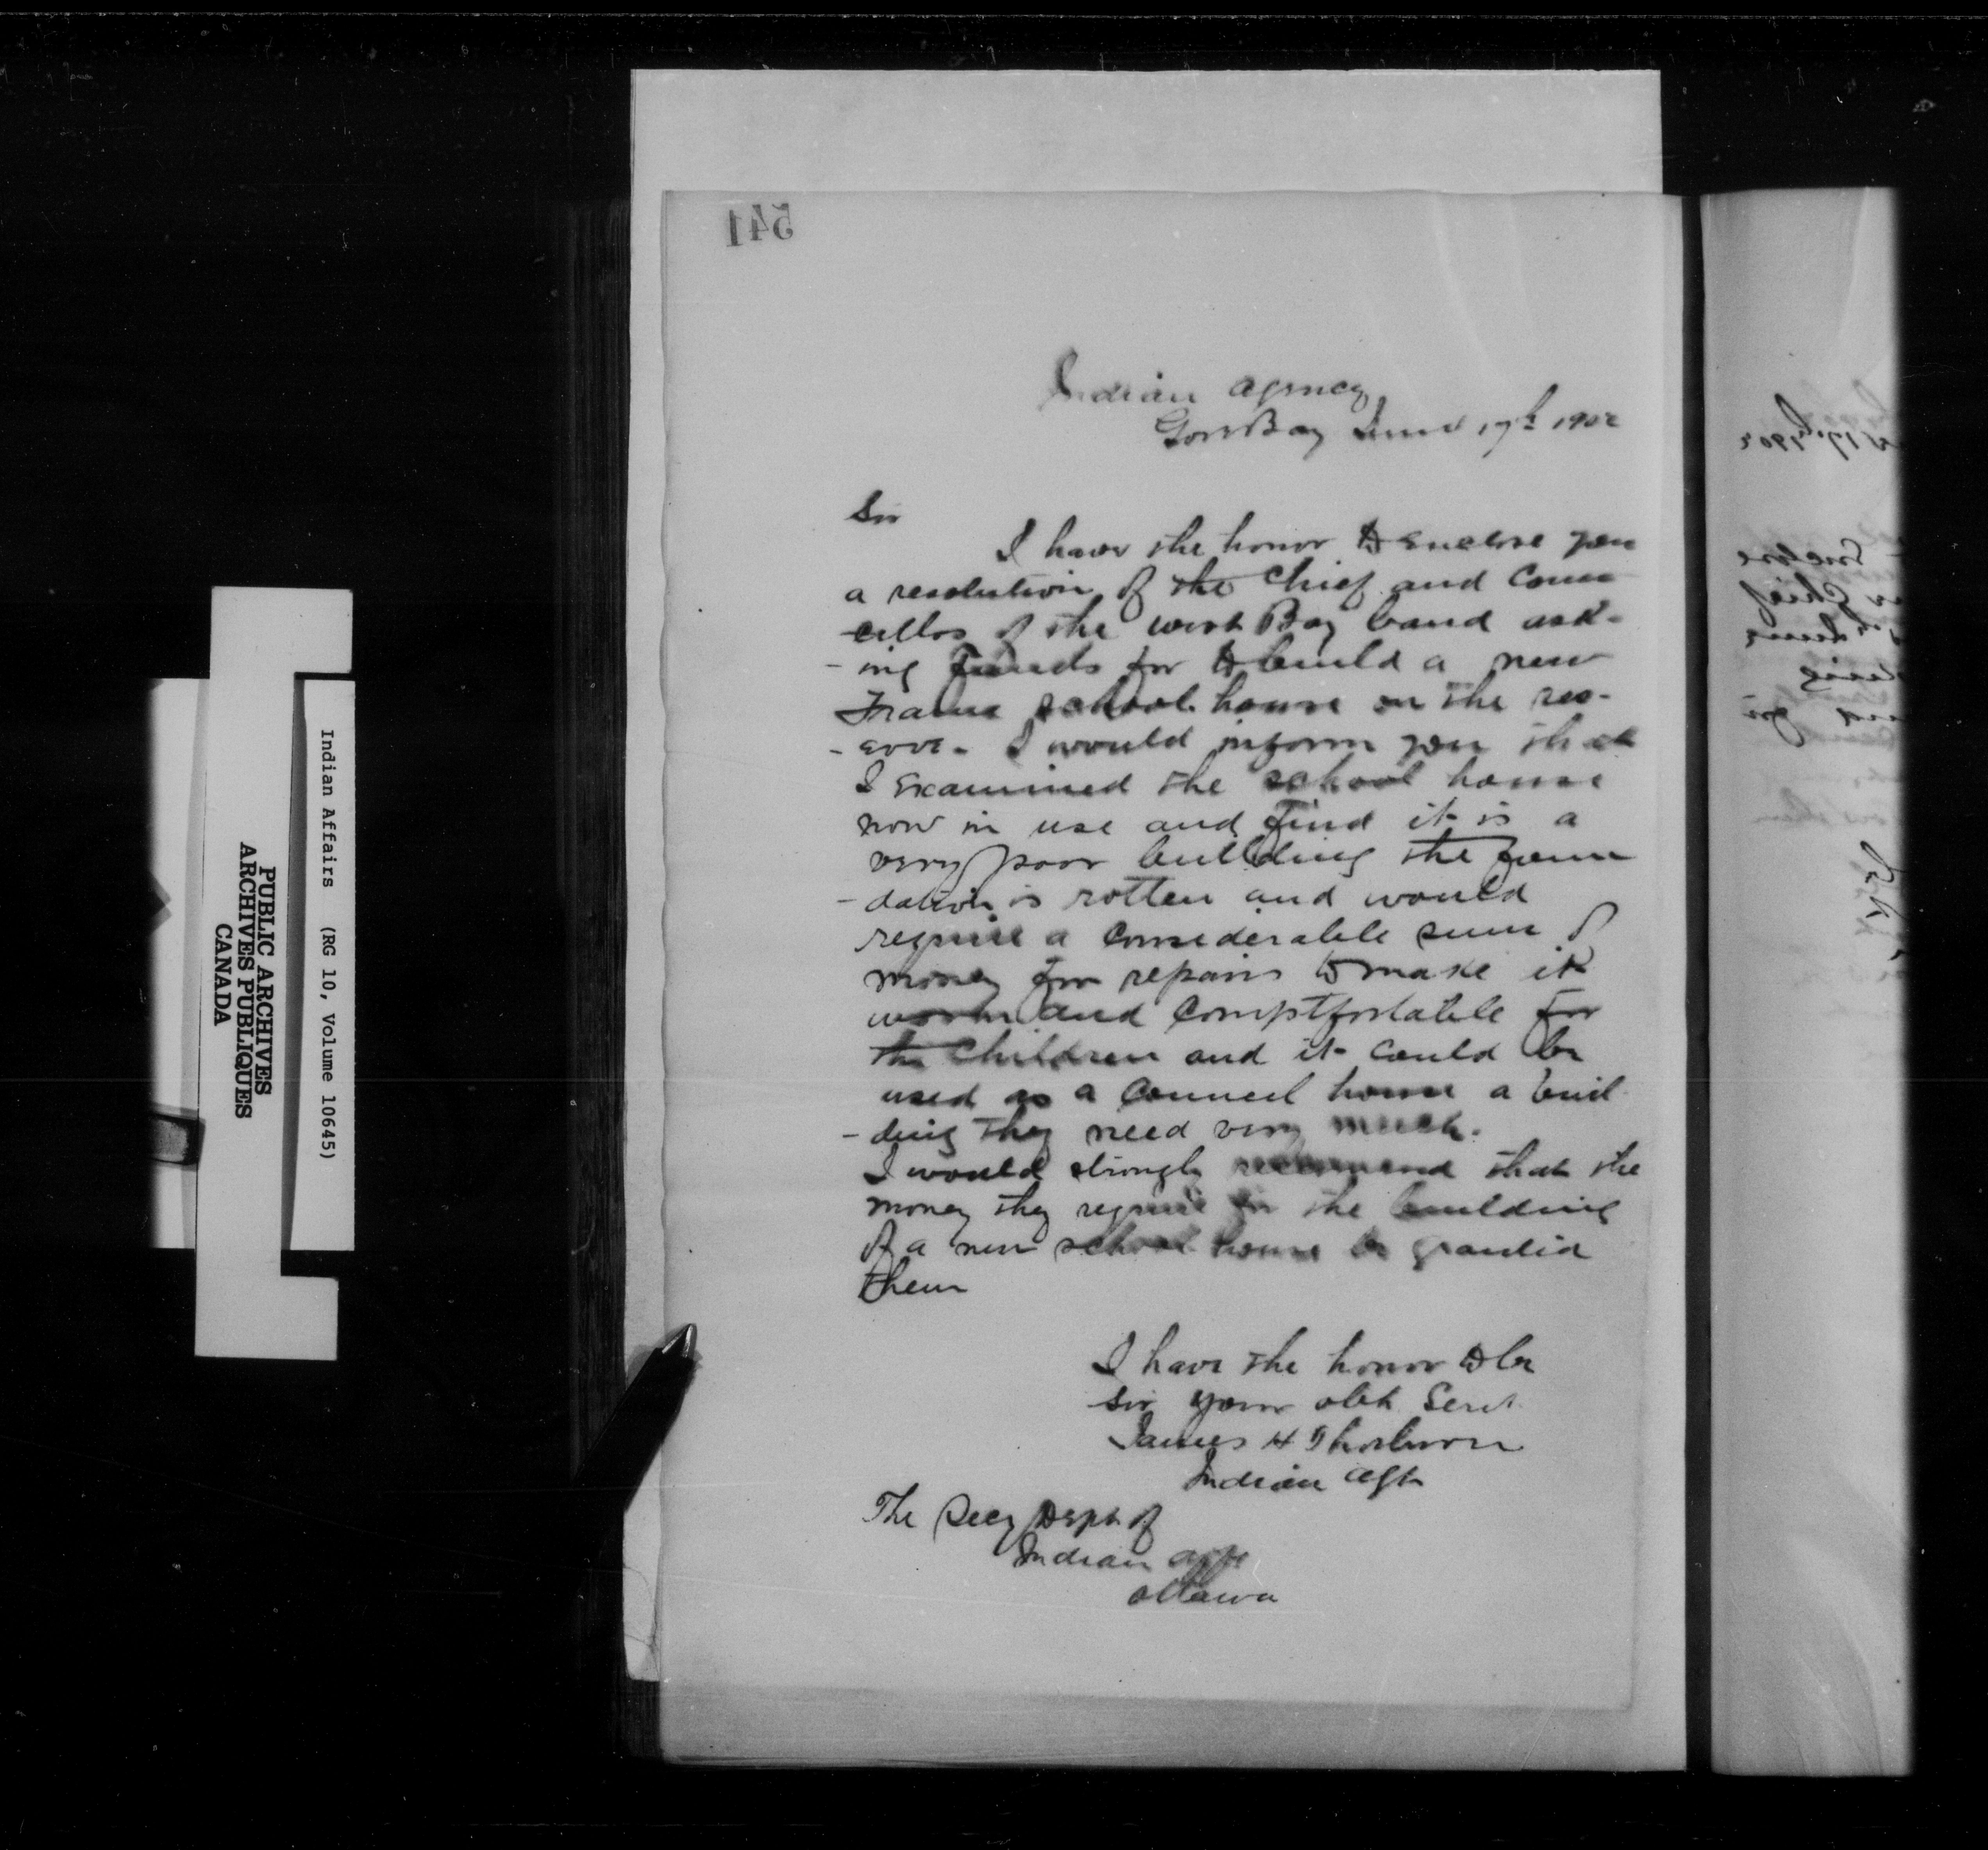 541
Indian Agency
Gore Bay June 17th 1902
Sir
I have the honor to enclose you
a resolution of the Chief and Coun
cillos of the west Bay band ask-
-ing funds for to build a new
Frame school house on the res-
-erve. I would inform you that
I Examined the school house
now in use and find it is a
very poor building the foun
-dation is rotten and would
require a considerable sum of
money for repairs to make it
warm and comptfortable for
the children and it could be
used as a Council house a buil
-ding they need very much.
I would strongly recommend that the
money they require for the building
of a new school house be granted
them
I have the honor to be
Sir your obt Servt
James H Thorburn
Indian Agt
The Secy Dept of
Indian Affs
Ottawa
Indian Affairs (RG 10, Volume 10645)
PUBLIC ARCHIVES
ARCHIVES PUBLIQUES
CANADA